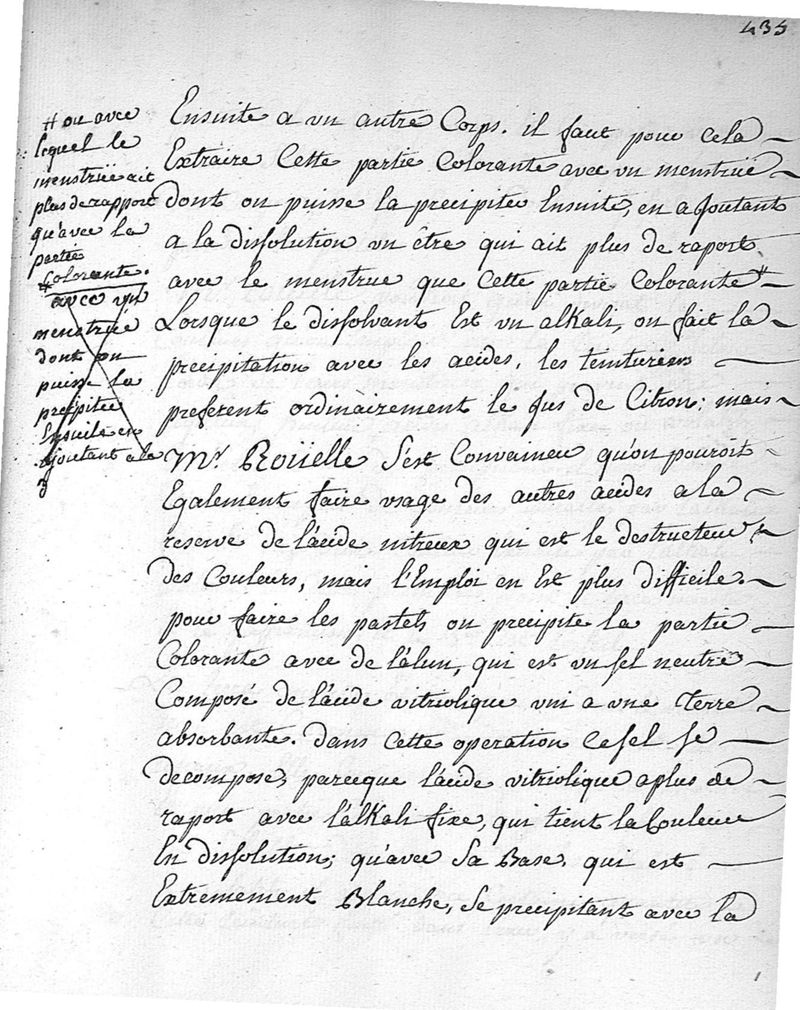 435
# ou avec
lequel le
menstrüe ait
plus de rapport
qu'avec la
partie
Colorante.
avec un
menstrüe
dont on
puisse la
précipitée
Ensuite en
ajoutant a la
Ensuite a vn autre Corps. il faut pour cela
Extraire Cette partie Colorante avec vn menstrüe
dont on puisse la precipitée Ensuite, en ajoutant
a la dissolution vn être qui ait plus de raport
avec le menstrue que Cette partie Colorante #
Lorsque le dissolvant Est vn alkali, on fait la
precipitation avec les acides, les teinturiers
preferent ordinairement le Jus de Citron; mais
Mr. Roüelle S'est Convaincu qu'on pouroit
Egalement faire usage des autres acides a la
reserve de l'acide nitreux qui est le destructeur
des Couleurs, mais l'Emploi en Est plus difficile.
pour faire les pastels on precipite la partie
Colorante avec de l'alun, qui est vn sel neutre
Composé de l'acide vitriolique vni a vne Terre
absorbante. Dans Cette operation Ce sel se
decompose, parceque l'acide vitriolique a plus de
raport avec l'alkali fixe, qui tient la Couleur
En dissolution; qu'avec Sa Base, qui est
Extremement Blanche, Se precipitant avec la